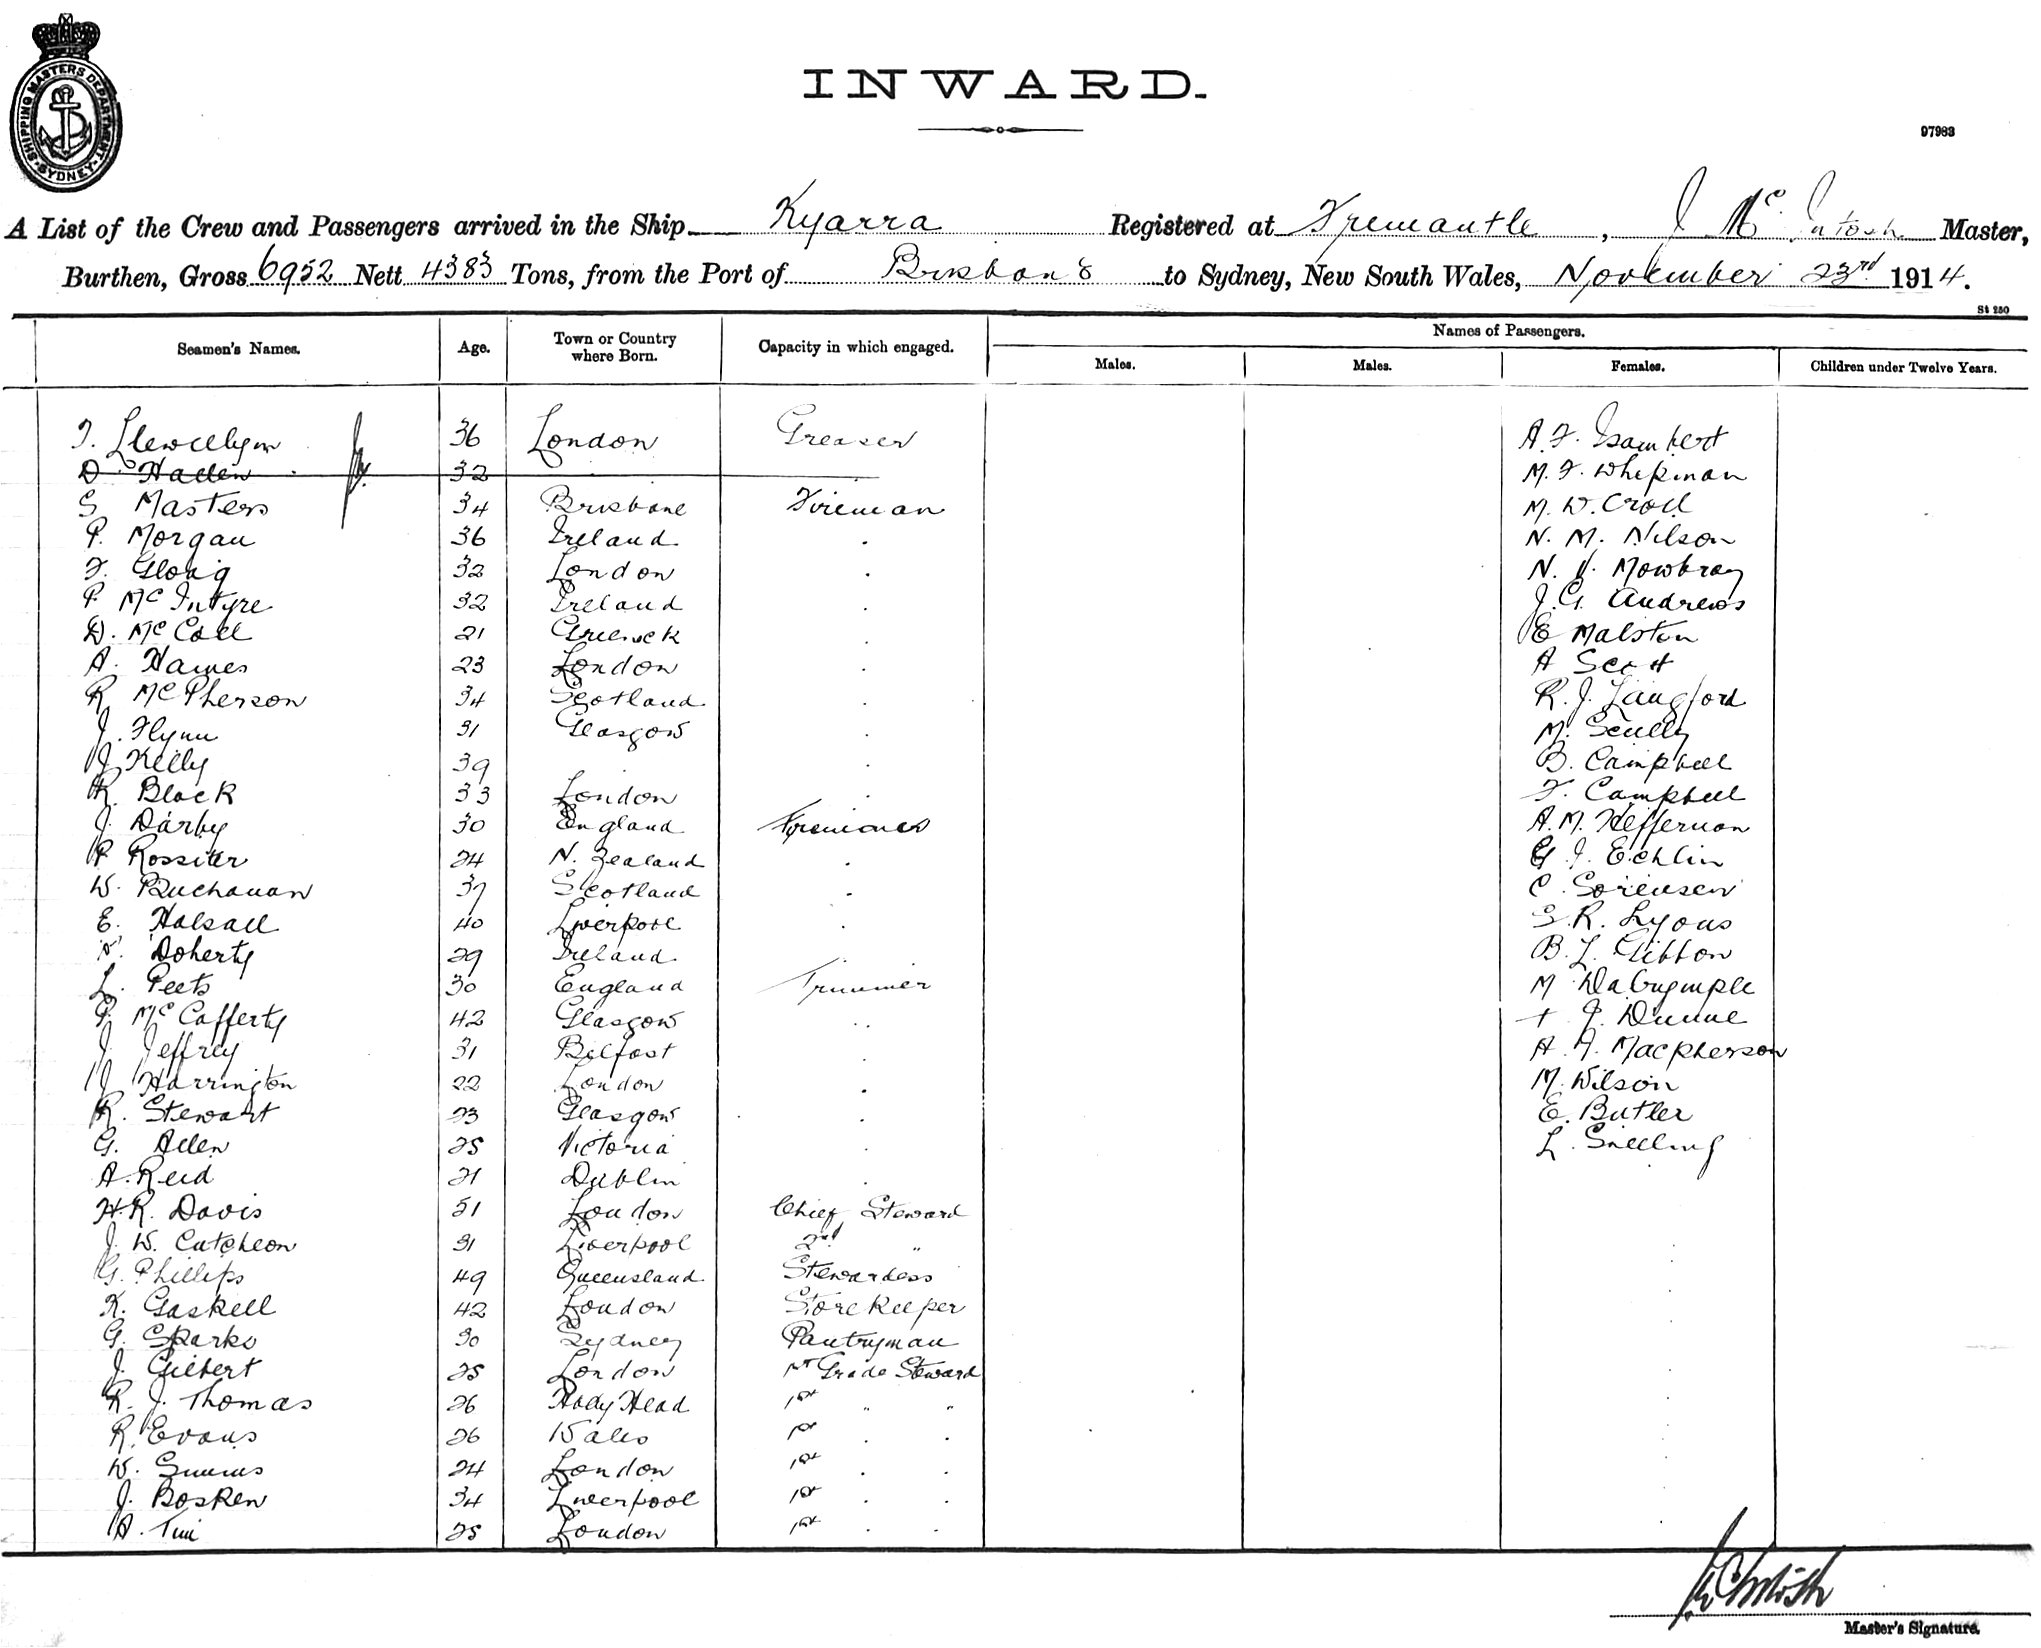 SHIPPING MASTERS DEPARTMENT SYDNEY
INWARD.
97983
A List of the Crew and Passengers arrived in the Ship Kyarra Registered at Fremantle, J McIntosh Master,
Burthen, Gross 6952 Nett 4383 Tons, from the Port of Brisbane to Sydney, New South Wales, November 23rd 1914.
St 250
Seamen's Names. Age. Town or Country where Born. Capacity in which engaged. Names of Passengers.
Males. Males. Females. Children under Twelve Years.
T. Llewellyn 36 London Greaser A. F. Isambert
D. Hallen 32 M. F. Whipman
S Masters 34 Brisbane Fireman M. W. Croll
P. Morgan 36 Ireland . N. M. Nilson
F. Gloag 32 London . N. V. Mowbray
P McIntyre 32 Ireland . J. G. Andrews
D. McCall 21 . E Malston
A. Hawes 23 London . A Scott
R McPherson 34 Scotland . R. J. Langford
J. Flynn 31 Glasgow . M. Scully
J Kelly 39 . B. Campbell
R. Black 33 London . F. Campbell
J. Darby 30 England Firemen A. M. Heffernan
P Rossiter 24 N. Zealand . G. J. Echlin
W. Buchanan 37 Scotland . C. Sorensen
E. Halsall 40 Liverpool . S. R. Lyons
Doherty 29 Ireland B. L. Gibbon
L. Peets 30 England Trimmer M Dalrymple
P. McCafferty 42 Glasgow . . J. Dunne
J. Jeffrey 31 Belfast . A. A. Macpherson
J Harrington 22 London . M. Wilson
R. Stewart 23 Glasgow . E. Butler
G. Allen 25 Victoria . L. Snelling
A. Reid 21 Dublin .
H. R. Davis 51 London Chief Steward
J. W. Cutcheon 31 Liverpool 2nd "
G. Phillips 49 Queensland Stewardess
K. Gaskell 42 London Storekeeper
G. Sparks 30 Sydney Pantryman
J. Gilbert 25 London 1st Grade Steward
R. J. Thomas 26 Holy Head 1st " "
R. Evans 26 Wales 1st . .
W. Simms 24 London 1st . .
J. Bosken 34 Liverpool 1st . .
A. 25 London 1st . .
McIntosh
Master's Signature.